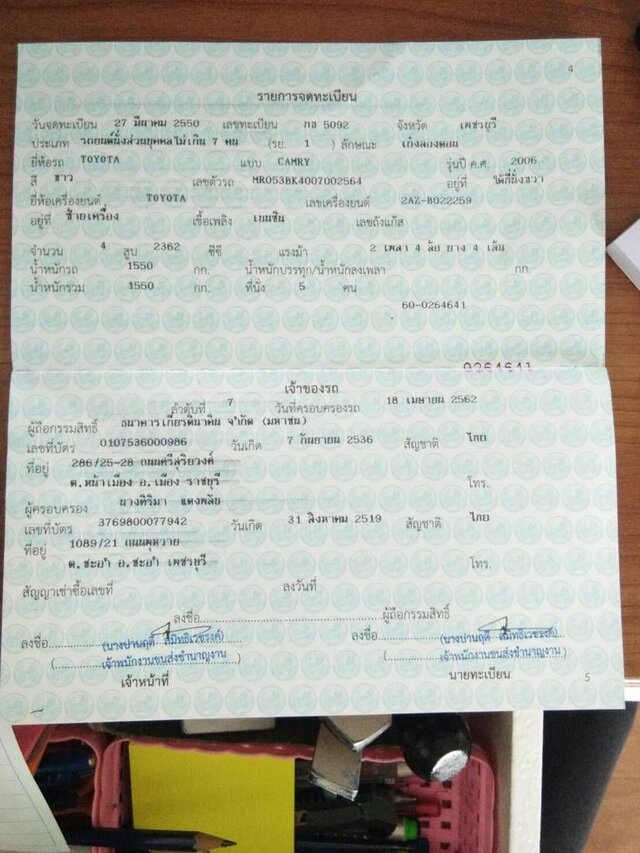 4
รายการจดทะเบียน
วันจดทะเบียน 27 มีนาคม 2550 เลขทะเบียน กอ 5092 จังหวัด เพชรบุรี
ประเภท รถยนต์นั่งส่วนบุคคลไม่เกิน 7 คน (รย. 1 ) ลักษณะ เก๋งสองตอน
ยี่ห้อรถ TOYOTA แบบ CAMRY รุ่นปี ค.ศ. 2006
สี ขาว เลขตัวรถ MR053BK4007002564 อยู่ที่ ใต้ที่นั่งขวา
ยี่ห้อเครื่องยนต์ TOYOTA เลขเครื่องยนต์ 2AZ-B022259
อยู่ที่ ซ้ายเครื่อง เชื้อเพลิง เบนซิน เลขถังแก๊ส
จำนวน 4 สูบ 2362 ซีซี แรงม้า 2 เพลา 4 ล้อ ยาง 4 เส้น
น้ำหนักรถ 1550 กก. น้ำหนักบรรทุก/น้ำหนักลงเพลา กก.
น้ำหนักรวม 1550 กก. ที่นั่ง 5 คน
60-0264641
0264641
เจ้าของรถ
ลำดับที่ 7 วันที่ครอบครองรถ 18 เมษายน 2562
ผู้ถือกรรมสิทธิ์ ธนาคารเกียรตินาคิน จำกัด (มหาชน)
เลขที่บัตร 0107536000986 วันเกิด 7 กันยายน 2536 สัญชาติ ไทย
ที่อยู่ 286/25-28 ถนนศรีสุริยวงศ์
ต.หน้าเมือง อ.เมือง ราชบุรี โทร.
ผู้ครอบครอง นางศิริมา แดงพลับ
เลขที่บัตร 3769800077942 วันเกิด 31 สิงหาคม 2519 สัญชาติ ไทย
ที่อยู่ 1089/21 ถนน
ต.ชะอำ อ.ชะอำ เพชรบุรี โทร.
สัญญาเช่าซื้อเลขที่ ลงวันที่
ลงชื่อ ผู้ถือกรรมสิทธิ์
ลงชื่อ (นางปานฤดี สมิทธิเวชรงค์) ลงชื่อ (นางปานฤดี สมิทธิเวชรงค์)
(เจ้าพนักงานขนส่งชำนาญงาน) (เจ้าพนักงานขนส่งชำนาญงาน)
เจ้าหน้าที่ นายทะเบียน 5